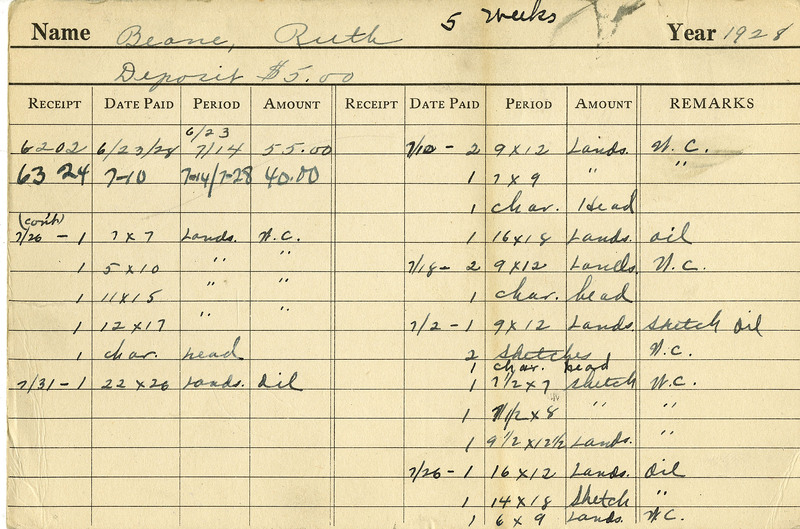 5 weeks
Name Beane, Ruth Year 1928
Deposit $5.00
RECEIPT DATE PAID PERIOD AMOUNT RECEIPT DATE PAID PERIOD AMOUNT REMARKS
6/23
6202 6/23/28 7/14 55.00 7/10 - 2 9 x 12 Lands. W.C.
6324 7-10 7-14/7-28 40.00 1 7 x 9 " "
1 char. Head
(con't)
7/26 - 1 7 x 7 Lands. W.C. 1 16 x 18 Lands. oil
1 5 x 10 " " 7/18 - 2 9 x 12 Lands. W.C.
1 11 x 15 " " 1 char. head
1 12 x 17 " " 7/2 - 1 9 x 12 Lands. Sketch oil
1 char. head 2 Sketches W.C.
1 char. head
7/31 - 1 22 x 26 Lands. Oil 1 7 1/2 x 7 Sketch W.C.
1 7 1/2 x 8 " "
1 9 1/2 x 12 1/2 Lands. "
7/26 - 1 16 x 12 Lands. Oil
1 14 x 18 Sketch "
1 6 x 9 Lands. W.C.